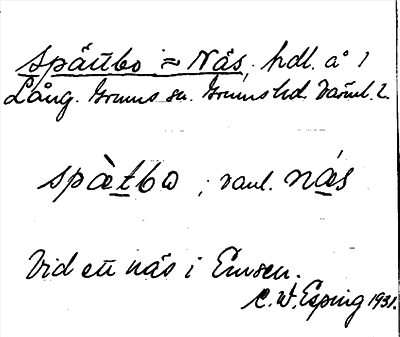 Spättbo = Näs, hdl. å 1
Lång. Grums sn. Grums hd. Värml. l.
spàtbω ; vanl. nás
Vid ett näs i Emsen.
C. W. Esping 1931.